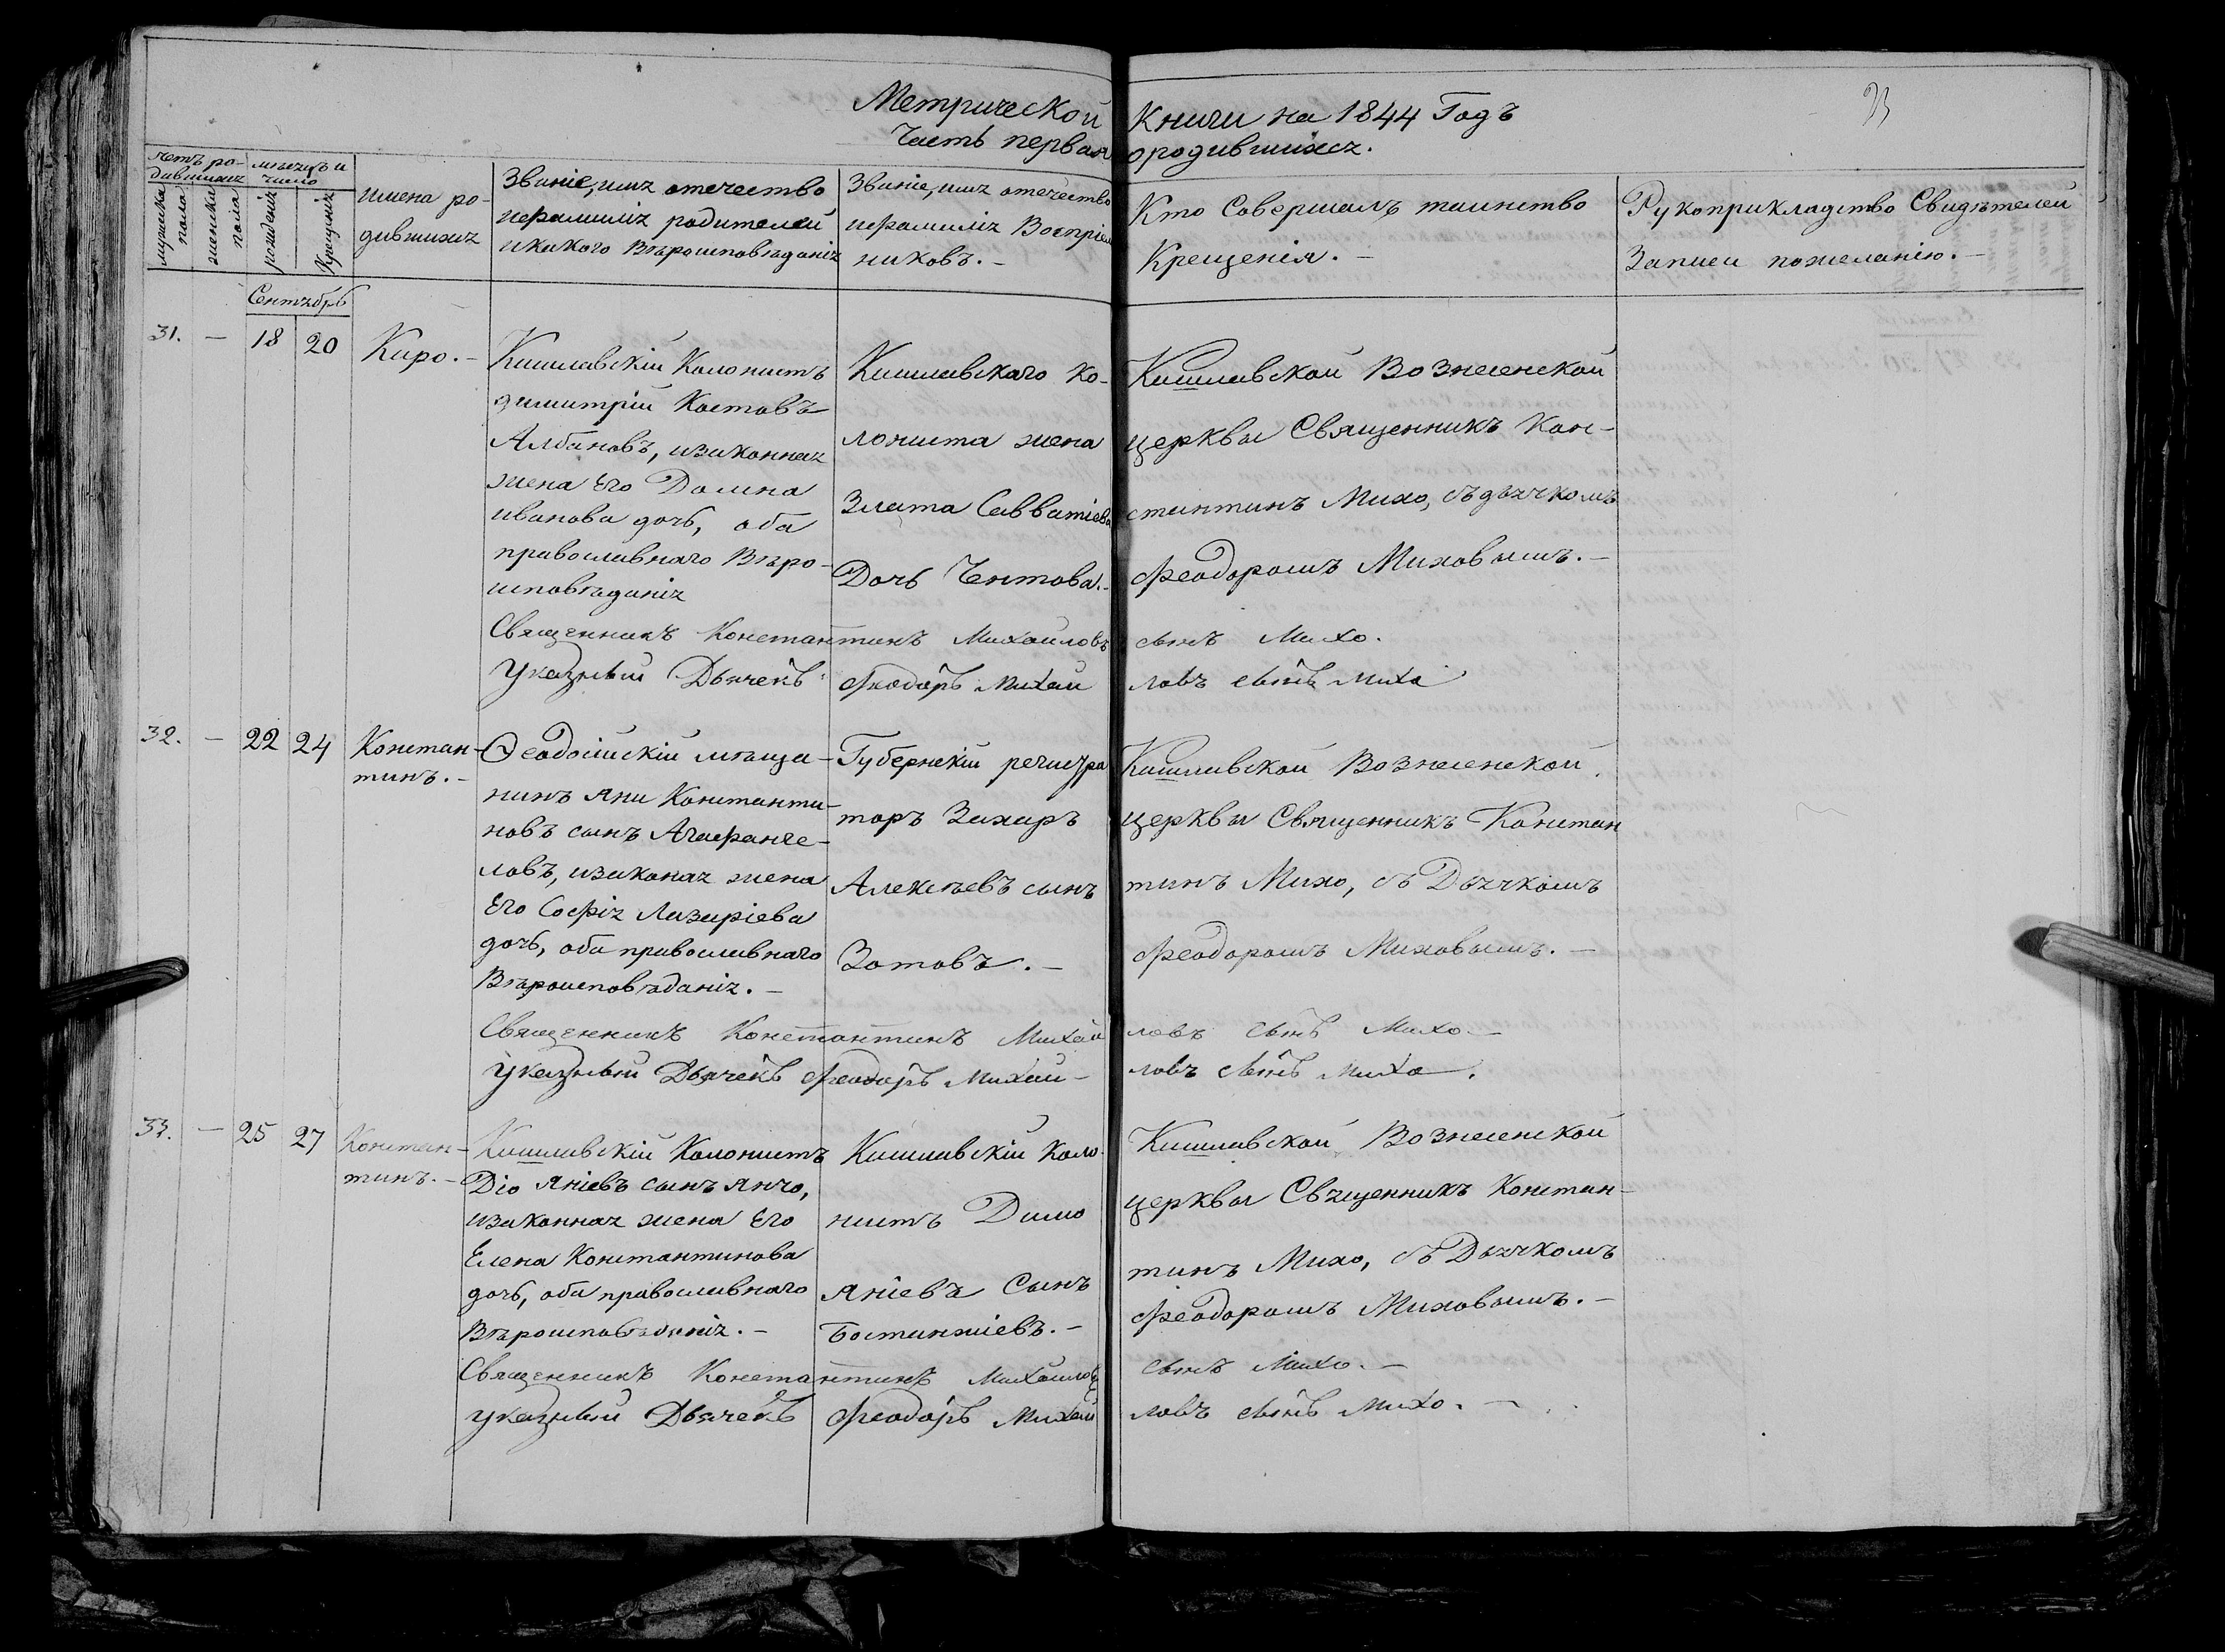 Метрической Книги на 1844 Годъ
Часть первая о родившихся.
счетъ родившихся
мужска пола
женска пола
мѣсяцъ и число
рожденія
Крещенія
имена родившихся
Званіе, имя отечество
и фамилія родителей
и какого Вѣроисповѣданія
Званіе, имя отечество
и фамилія Воспріем
никовъ. —
Кто Совершалъ таинство
Крещенія. —
Рукоприкладство Свидѣтелей
Записи по желанію. —
Сентябрь
31. — 18 20 Киро. —
Кишлавскій Колонистъ
димитрій Костовъ
Албановъ, и законная
жена Его Домна
иванова дочь, оба
православнаго Вѣро-
исповѣданія
Кишлавскаго ко-
лониста жена
Злата Савватіева
Дочь Чентова. —
Кишлавской Вознесенской
церквы Священникъ Кон-
стантинъ Михо, съ дьячкомъ
Феодоромъ Миховымъ. —
Священникъ Константинъ Михайловъ сынъ Михо.
Указный Дьячекъ Феодоръ Михайловъ сынъ Михо
32. — 22 24 Констан-
тинъ. —
Ѳеодосійскій мѣща-
нинъ Яни Константи-
новъ сынъ Агафанге-
ловъ, и законая жена
Его Софія Лазаріева
дочь, оба православнаго
Вѣроисповѣданія. —
Губернскій регистра
торъ Захаръ
Алексѣевъ сынъ
Зотовъ. —
Кишлавской Вознесенской
церквы Священникъ Констан
тинъ Михо, съ Дьячкомъ
Феодоромъ Миховымъ. —
Священникъ Константинъ Михайловъ сынъ Михо —
Указный Дьячекъ Феодоръ Михай-ловъ сынъ Михо.
33. — 25 27 Констан-
тинъ. —
Кишлавскій Колонистъ
Діо Яніевъ сынъ Янчо,
и законная жена Его
Елена Константинова
дочь, оба православнаго
Вѣроисповѣданія. —
Кишлавскій Коло-
нистъ Димо
Яніевъ Сынъ
Бостанжіевъ. —
Кишлавской Вознесенской
церквы Священникъ Констан-
тинъ Михо, съ Дьячкомъ
Феодоромъ Миховымъ. —
Священникъ Константинъ Михайловъ сынъ Михо. —
Указный Дьячекъ Феодоръ Михайловъ сынъ Михо. —